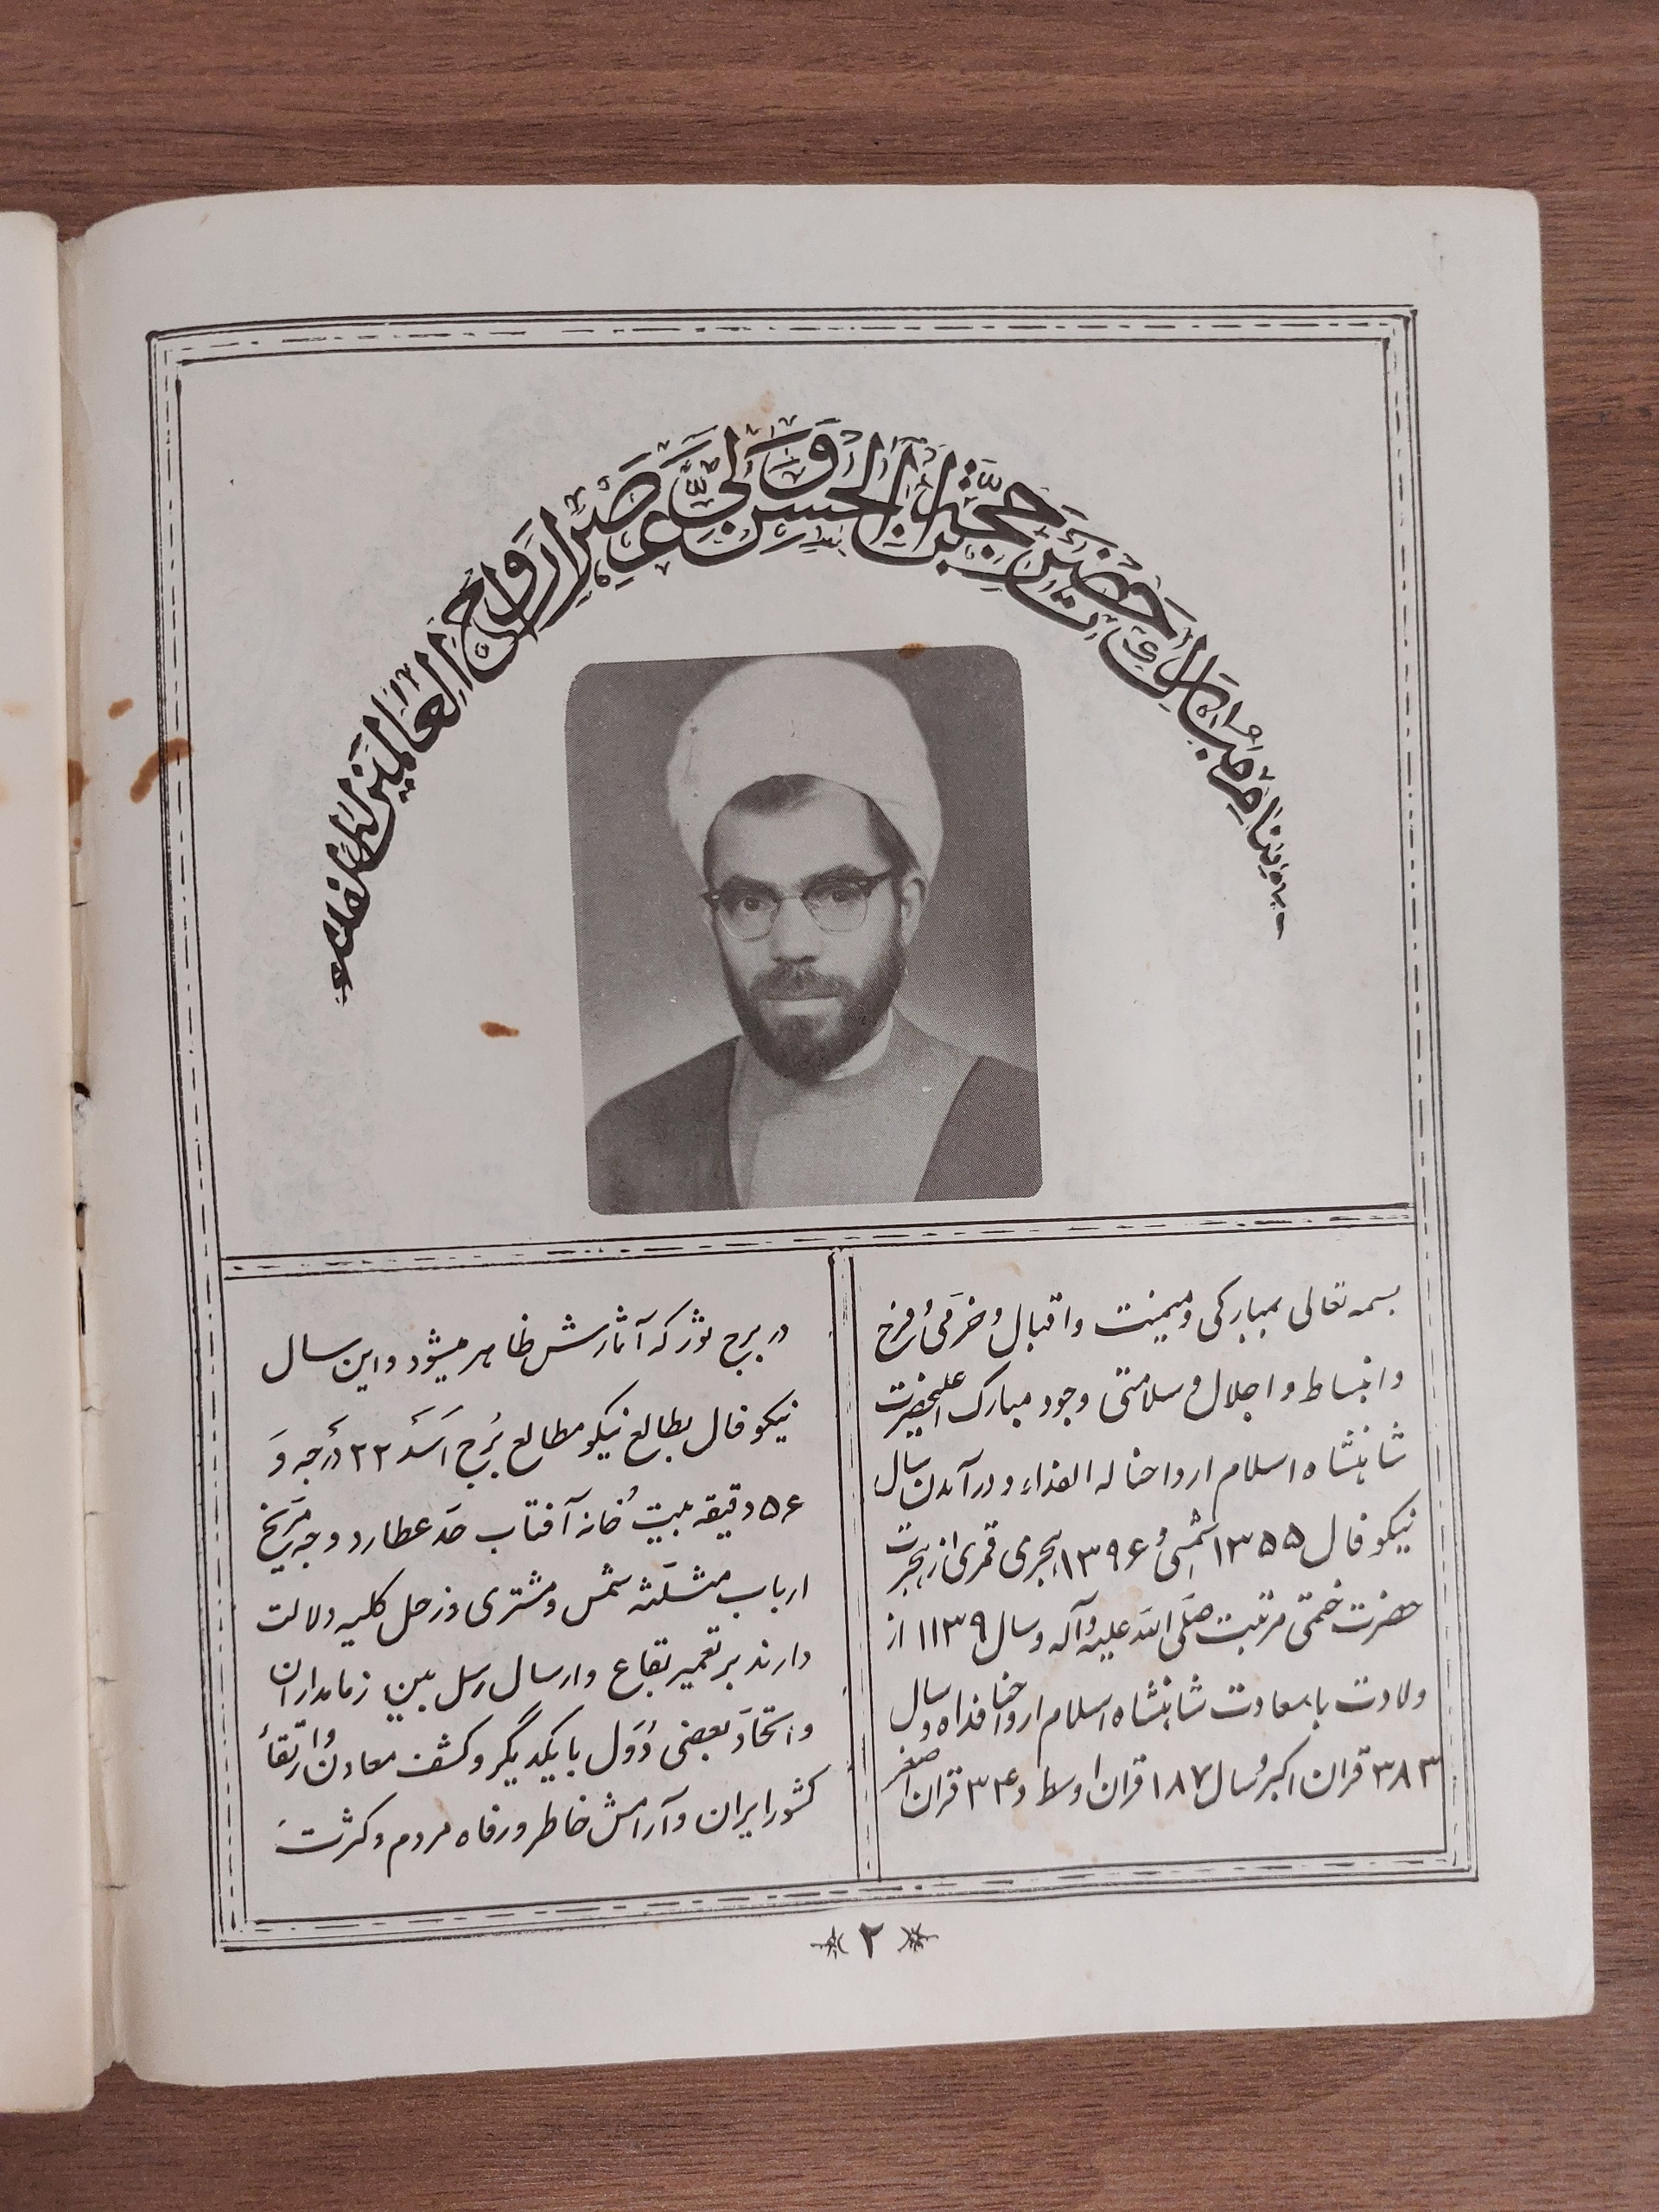 به پیشگاه مبارک حضرت حجّة بن الحسن ولیّ عصر ارواح العالمین له الفداء
بسمه تعالی بمبارکی و میمنت و اقبال و خرّمی و فرخ
و انبساط و اجلال و سلامتی وجود مبارک اعلیحضرت
شاهنشاه اسلام ارواحنا له الفداء و در آمدن سال
نیکو فال ۱۳۵۵ شمسی و ۱۳۹۶ هجری قمری از هجرت
حضرت ختمی مرتبت صلّی الله علیه و آله و سال ۱۱۳۹ از
ولادت با سعادت شاهنشاه اسلام ارواحنا فداه و سال
۳۸۳ قران اکبر و سال ۱۸۷ قران اوسط و ۳۴ قران اصغر
در برج ثور که آثارش ظاهر میشود و این سال
نیکو فال بطالع نیکو مطالع بُرج اَسَد ۲۲ دَرجه وَ
۵۶ دقیقه بیت خانه آفتاب حَد عطارد و جه مَریّخ
ارباب مثلّثه شمس و مشتری و زحل کلیه دلالت
دارند بر تعمیر بقاع و ارسال رسل بین زمامداران
و اتّحاد بعضی دُوَل با یکدیگر و کشف معادن و ارتقاء
کشور ایران و آرامش خاطر و رفاه مردم و کثرت
۲